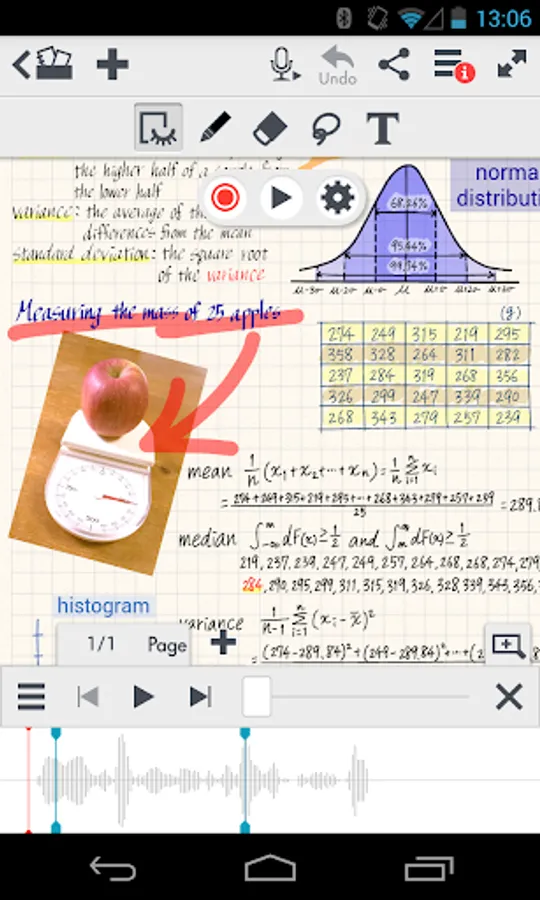 13:06
Undo
T
the higher half of a sample from
the lower half
variance: the average of the
differences from the mean
standard deviation: the square root
of the variance
norma
distributi
68.26%
95.44%
99.74%
μ-3σ μ-2σ μ-σ μ μ+σ μ+2σ μ+3σ
Measuring the mass of 25 apples
(g)
274 249 315 219 295
358 328 264 311 282
237 284 319 268 356
326 299 247 339 290
268 343 279 257 239
mean 1/n (x₁+x₂+…+xₙ)=1/n Σ xᵢ
= 274+249+315+219+295+…+268+343+279+257+239 / 25 = 289.8
median ∫ dF(x)≥1/2 and ∫ dF(x)≥1/2
219, 237, 239, 247, 249, 257, 264, 268, 268, 274, 279
284, 290, 295, 299, 311, 315, 319, 326, 328, 339, 343, 356,
histogram
variance 1/n-1 Σ (xᵢ-x̄)²
= (274-289.84)²+(249-289.84)²+…+(2
1/1 Page